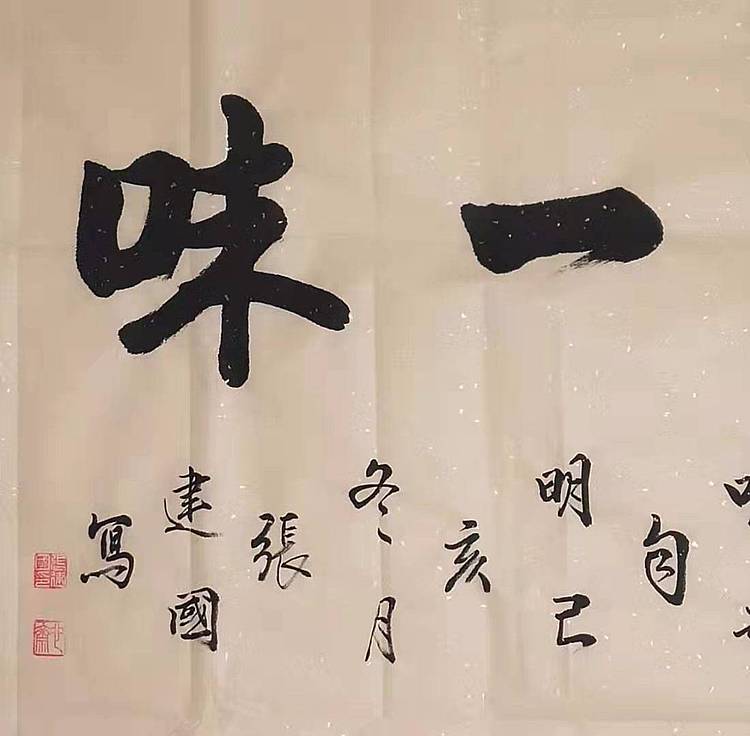 一味
自
明己
亥
冬月
張
建國
寫